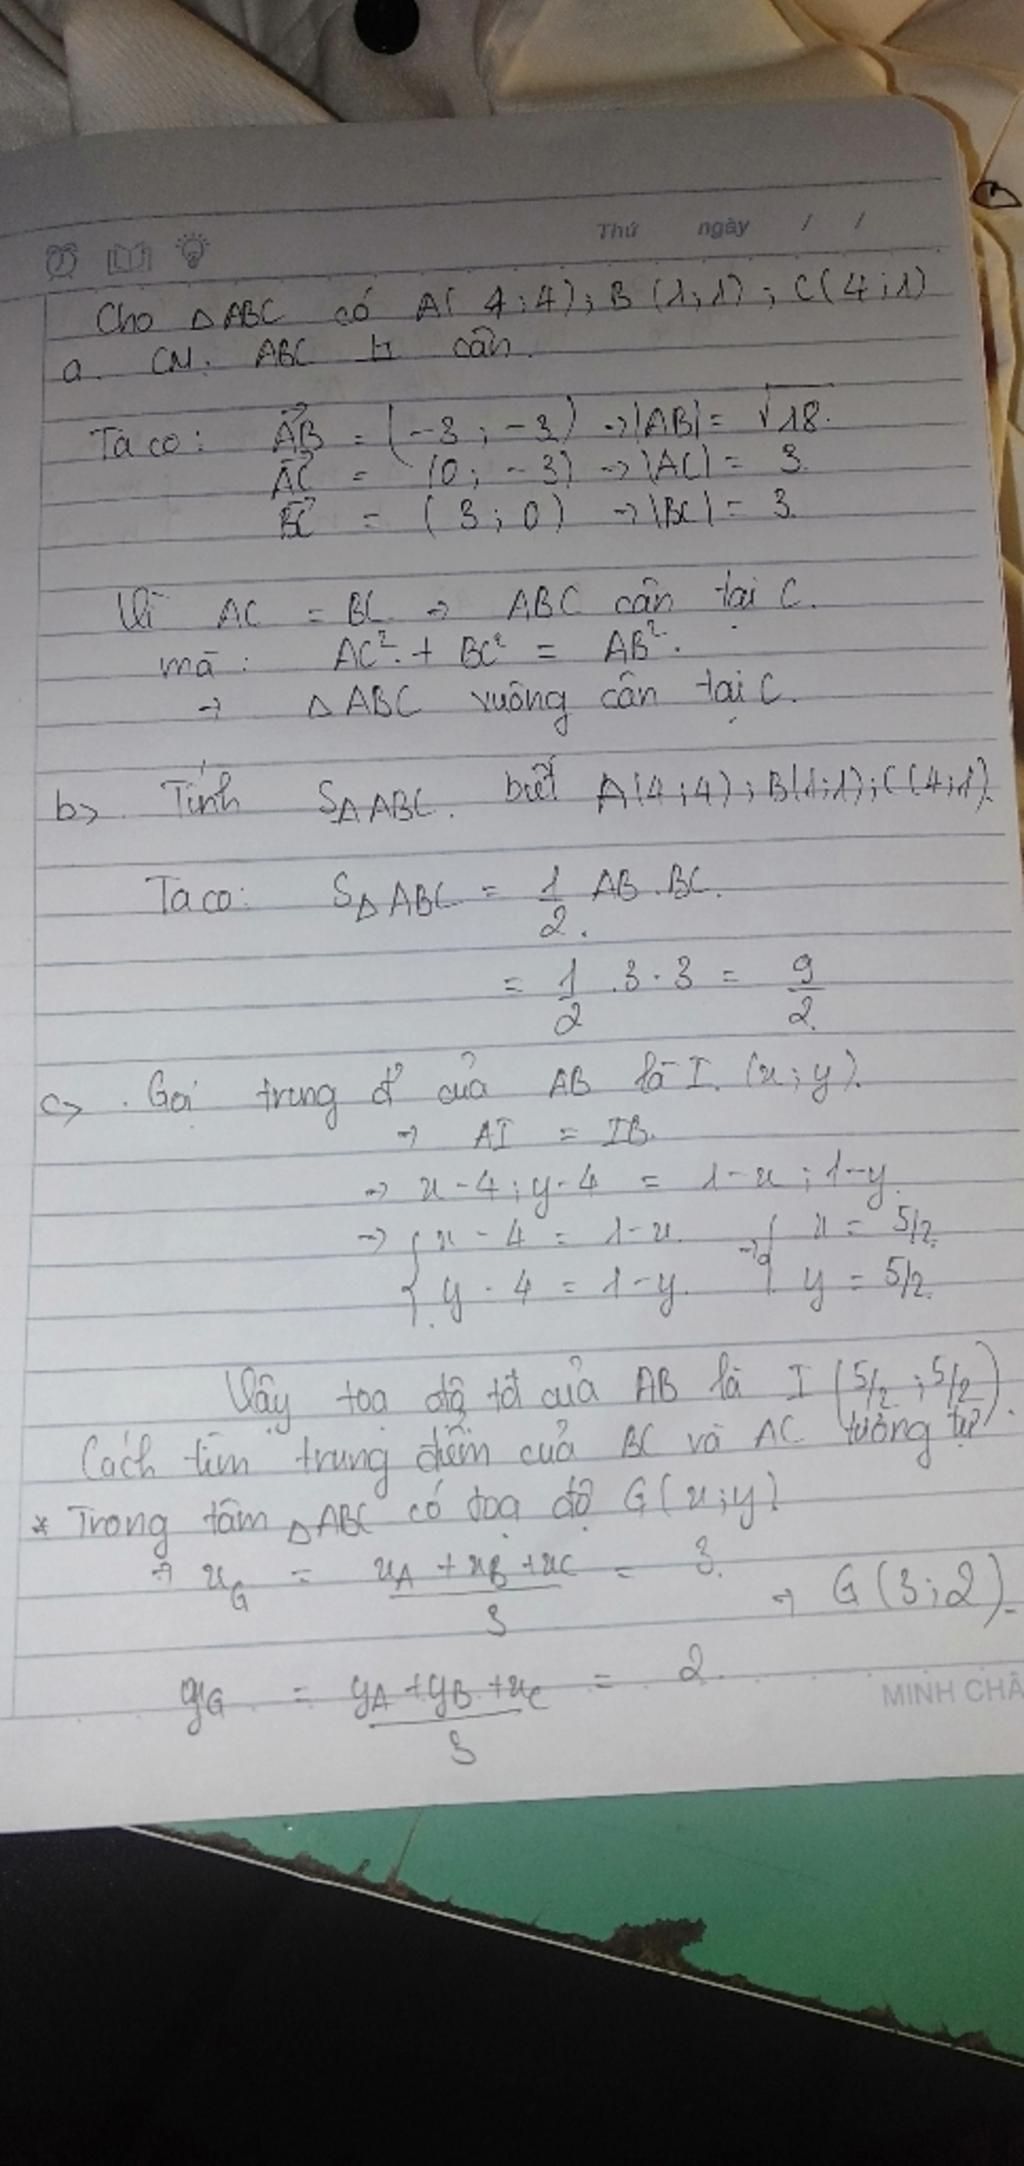 Thứ ngày / /
Cho △ABC có A( 4 ; 4) ; B (1 ; 1) ; C( 4 ; 1)
a. CM. ABC ⊢ cân.
Ta co: AB = (-3 ; -3) → |AB| = √18.
AC = (0 ; -3) → |AC| = 3
BC = ( 3 ; 0) → |BC| = 3.
Vì AC = BC → ABC cân tại C.
mà : AC². + BC² = AB².
→ △ABC vuông cân tại C.
b> Tính S△ABC. biết A(4 ; 4) ; B(1 ; 1) ; C(4 ; 1).
Ta co: S△ABC = 1/2 . AB . BC.
= 1/2 . 3 . 3 = 9/2.
c> . Gọi trung đ' của AB là I. (x ; y).
→ AI = IB.
→ x - 4 ; y - 4 = 1 - x ; 1 - y.
→ { x - 4 = 1 - x. → { x = 5/2.
{ y - 4 = 1 - y. { y = 5/2.
Vậy toạ độ tđ của AB là I (5/2 ; 5/2).
Cách tìm trung điểm của BC và AC tương tự.
* Trong tâm △ABC có toạ độ G(x ; y)
→ xG = (xA + xB + xC)/3 = 3. → G (3 ; 2).
yG = (yA + yB + xC)/3 = 2.
MINH CHÂ